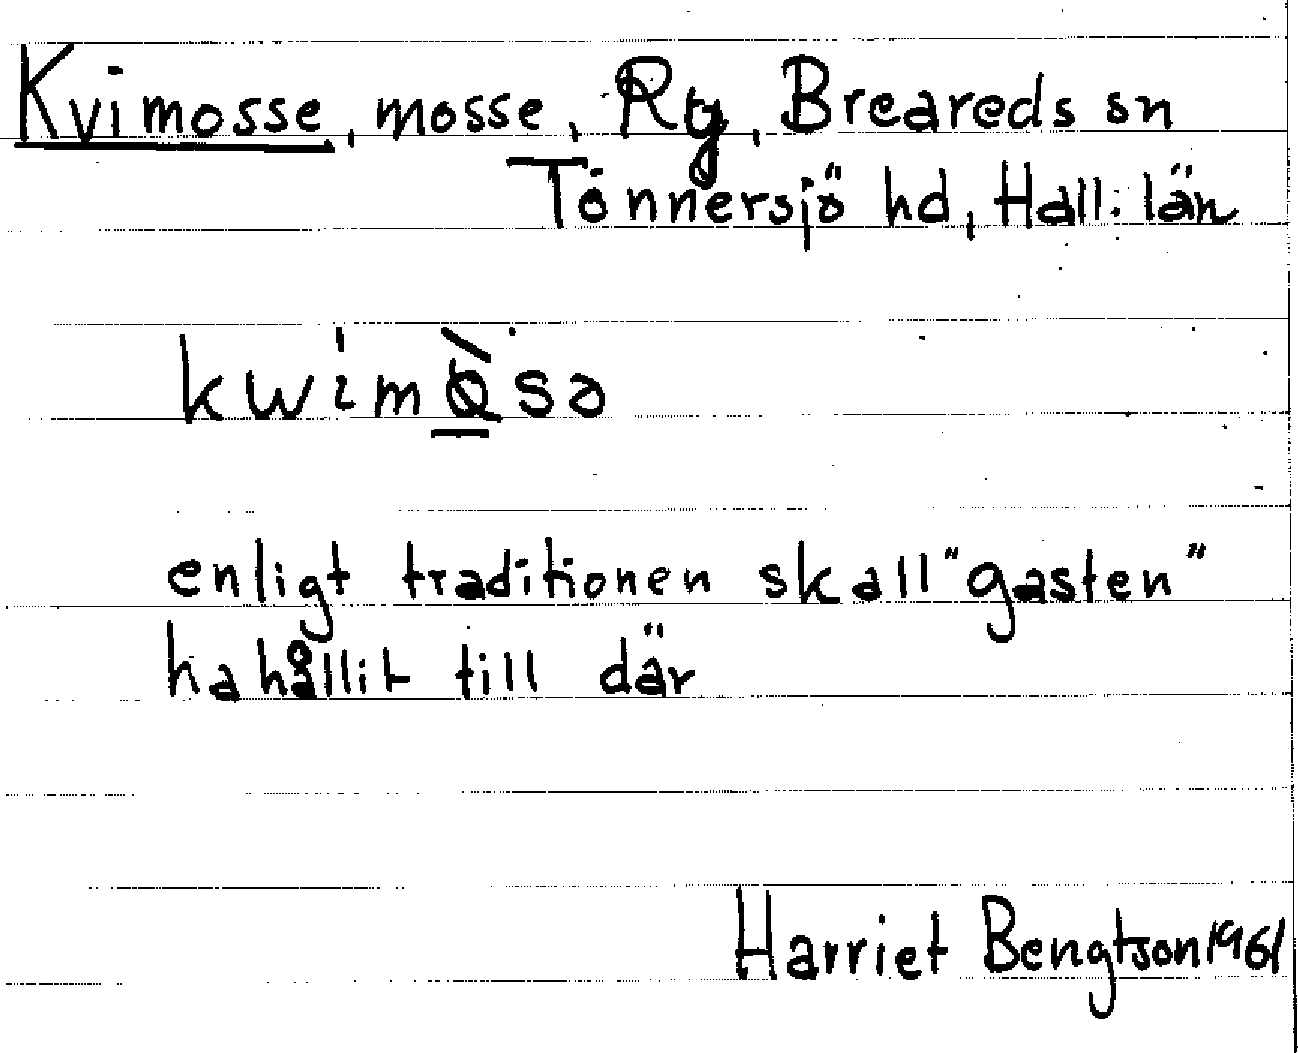 Kvimosse, mosse, Rtg, Breareds sn
Tönnersjö hd, Hall. län
enligt traditionen skall "gasten"
ha hållit till där
Harriet Bengtson 1961